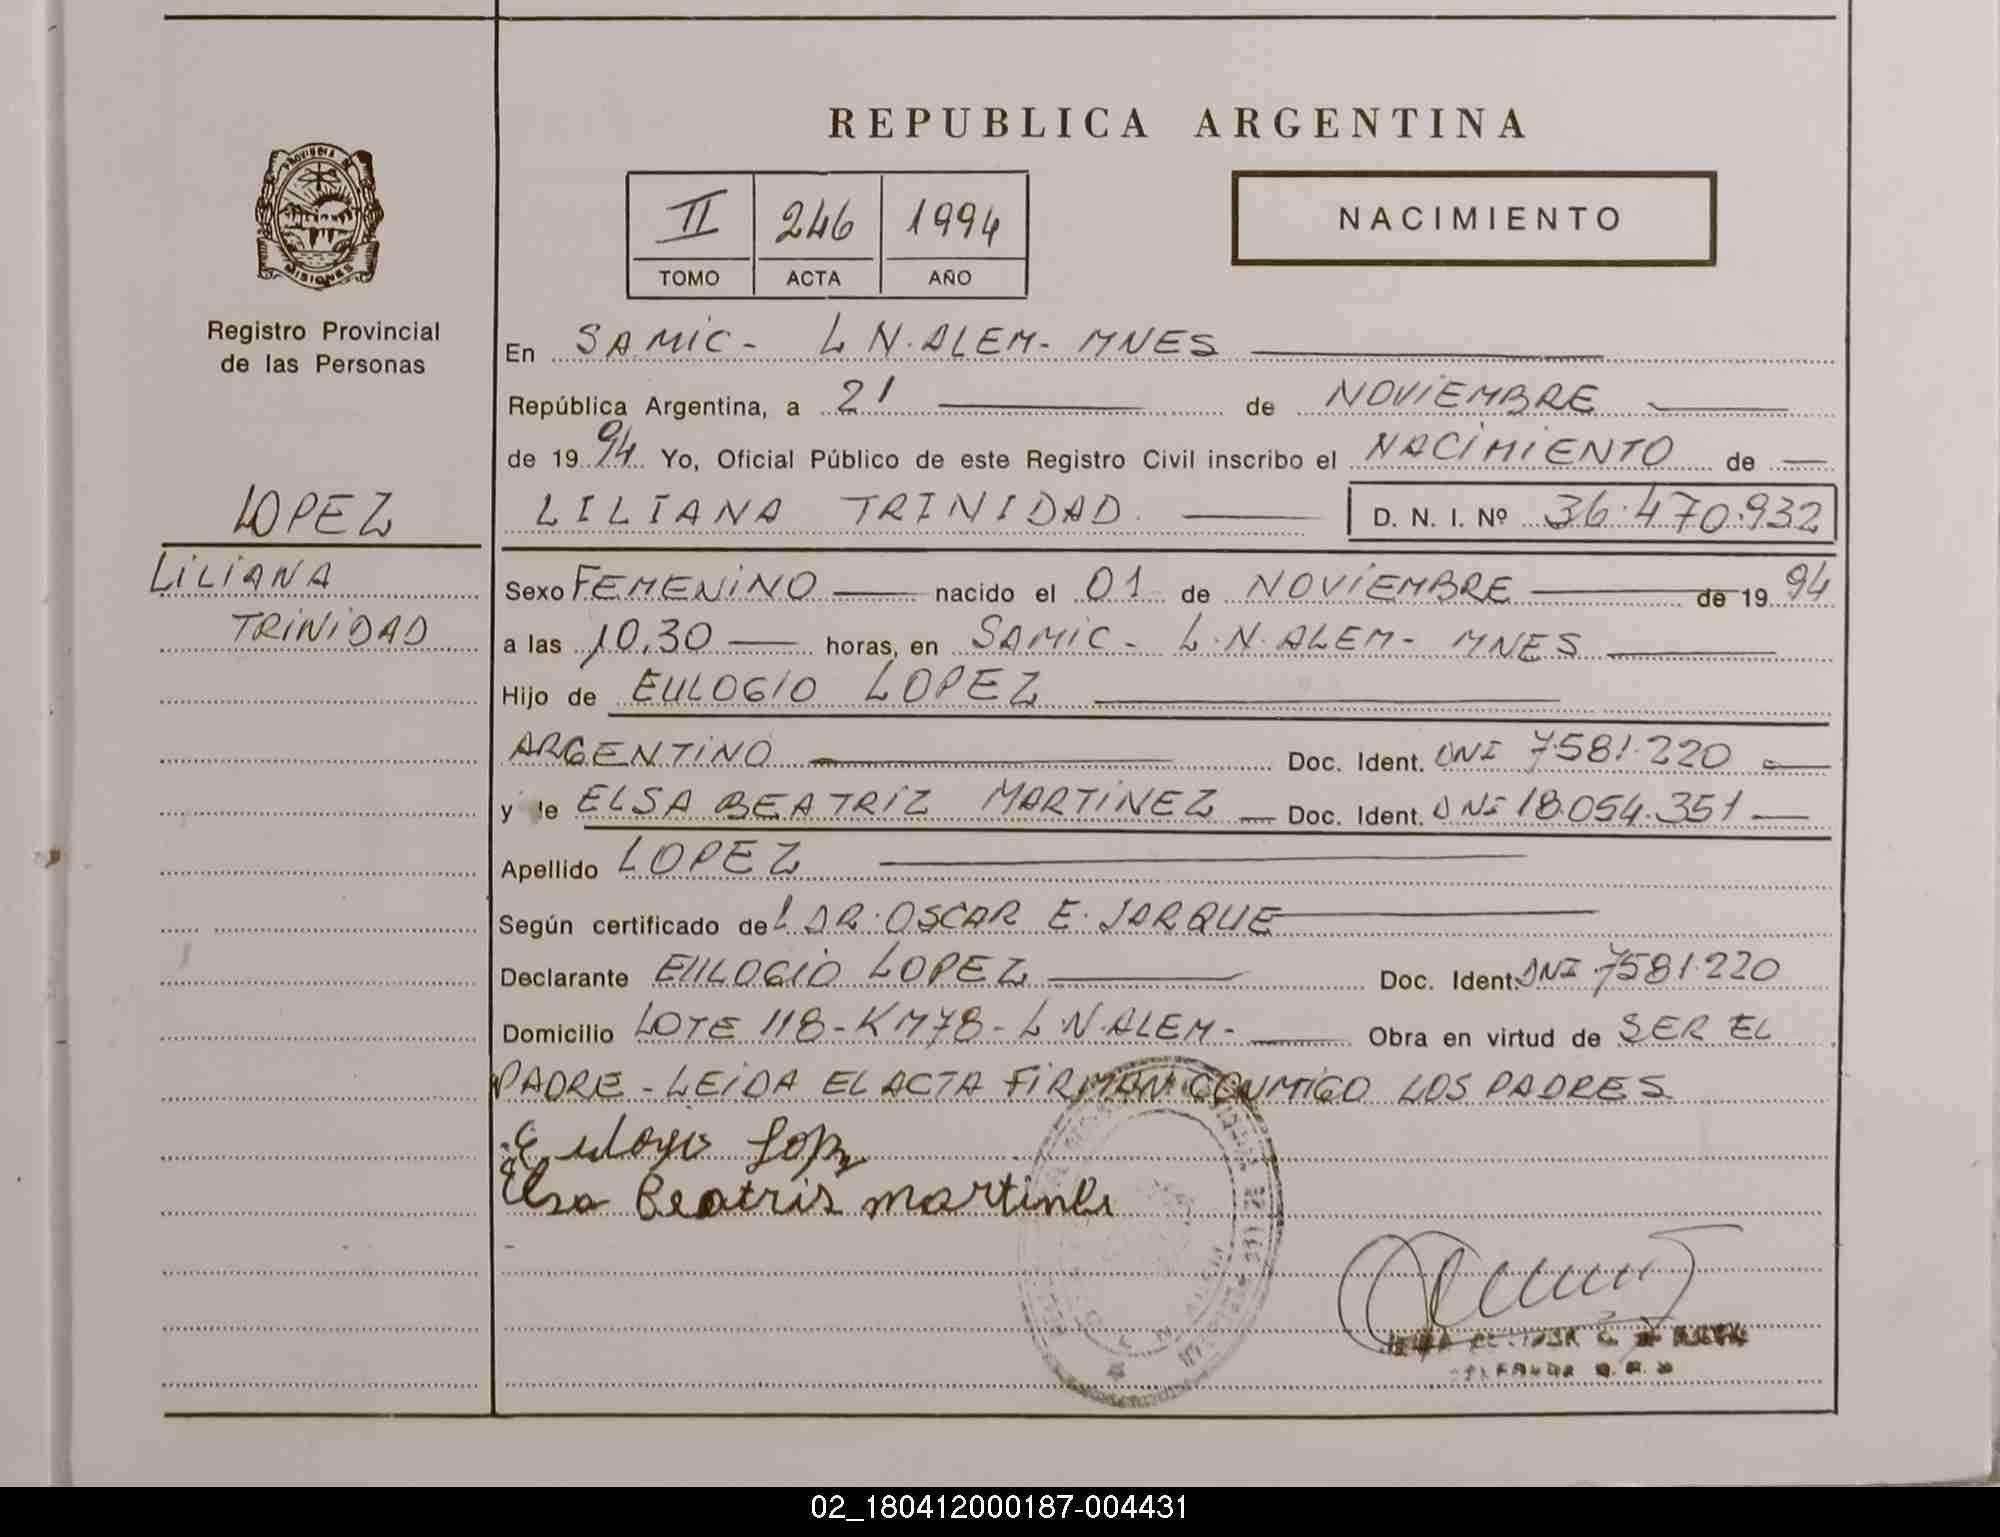 REPUBLICA ARGENTINA
PROVINCIA DE
MISIONES
II 246 1994
TOMO ACTA AÑO
NACIMIENTO
Registro Provincial
de las Personas
LOPEZ
LILIANA
TRINIDAD
En SAMIC- L N. ALEM- MNES
República Argentina, a 21 de NOVIEMBRE
de 19 94 Yo, Oficial Público de este Registro Civil inscribo el NACIMIENTO de
LILIANA TRINIDAD D. N. I. Nº 36.470.932
Sexo FEMENINO nacido el 01 de NOVIEMBRE de 19 94
a las 10,30 horas, en SAMIC- L.N. ALEM- MNES
Hijo de EULOGIO LOPEZ
ARGENTINO Doc. Ident. DNI 7.581.220
y de ELSA BEATRIZ MARTINEZ Doc. Ident. DNI 18.054.351
Apellido LOPEZ
Según certificado del DR. OSCAR E. JARQUE
Declarante EULOGIO LOPEZ Doc. Ident. DNI 7.581.220
Domicilio LOTE 118-KM78-L.N.ALEM- Obra en virtud de SER EL
PADRE - LEIDA EL ACTA FIRMAN CONMIGO LOS PADRES
Eulogio Lopz
Elsa Beatris martinez
02_180412000187-004431